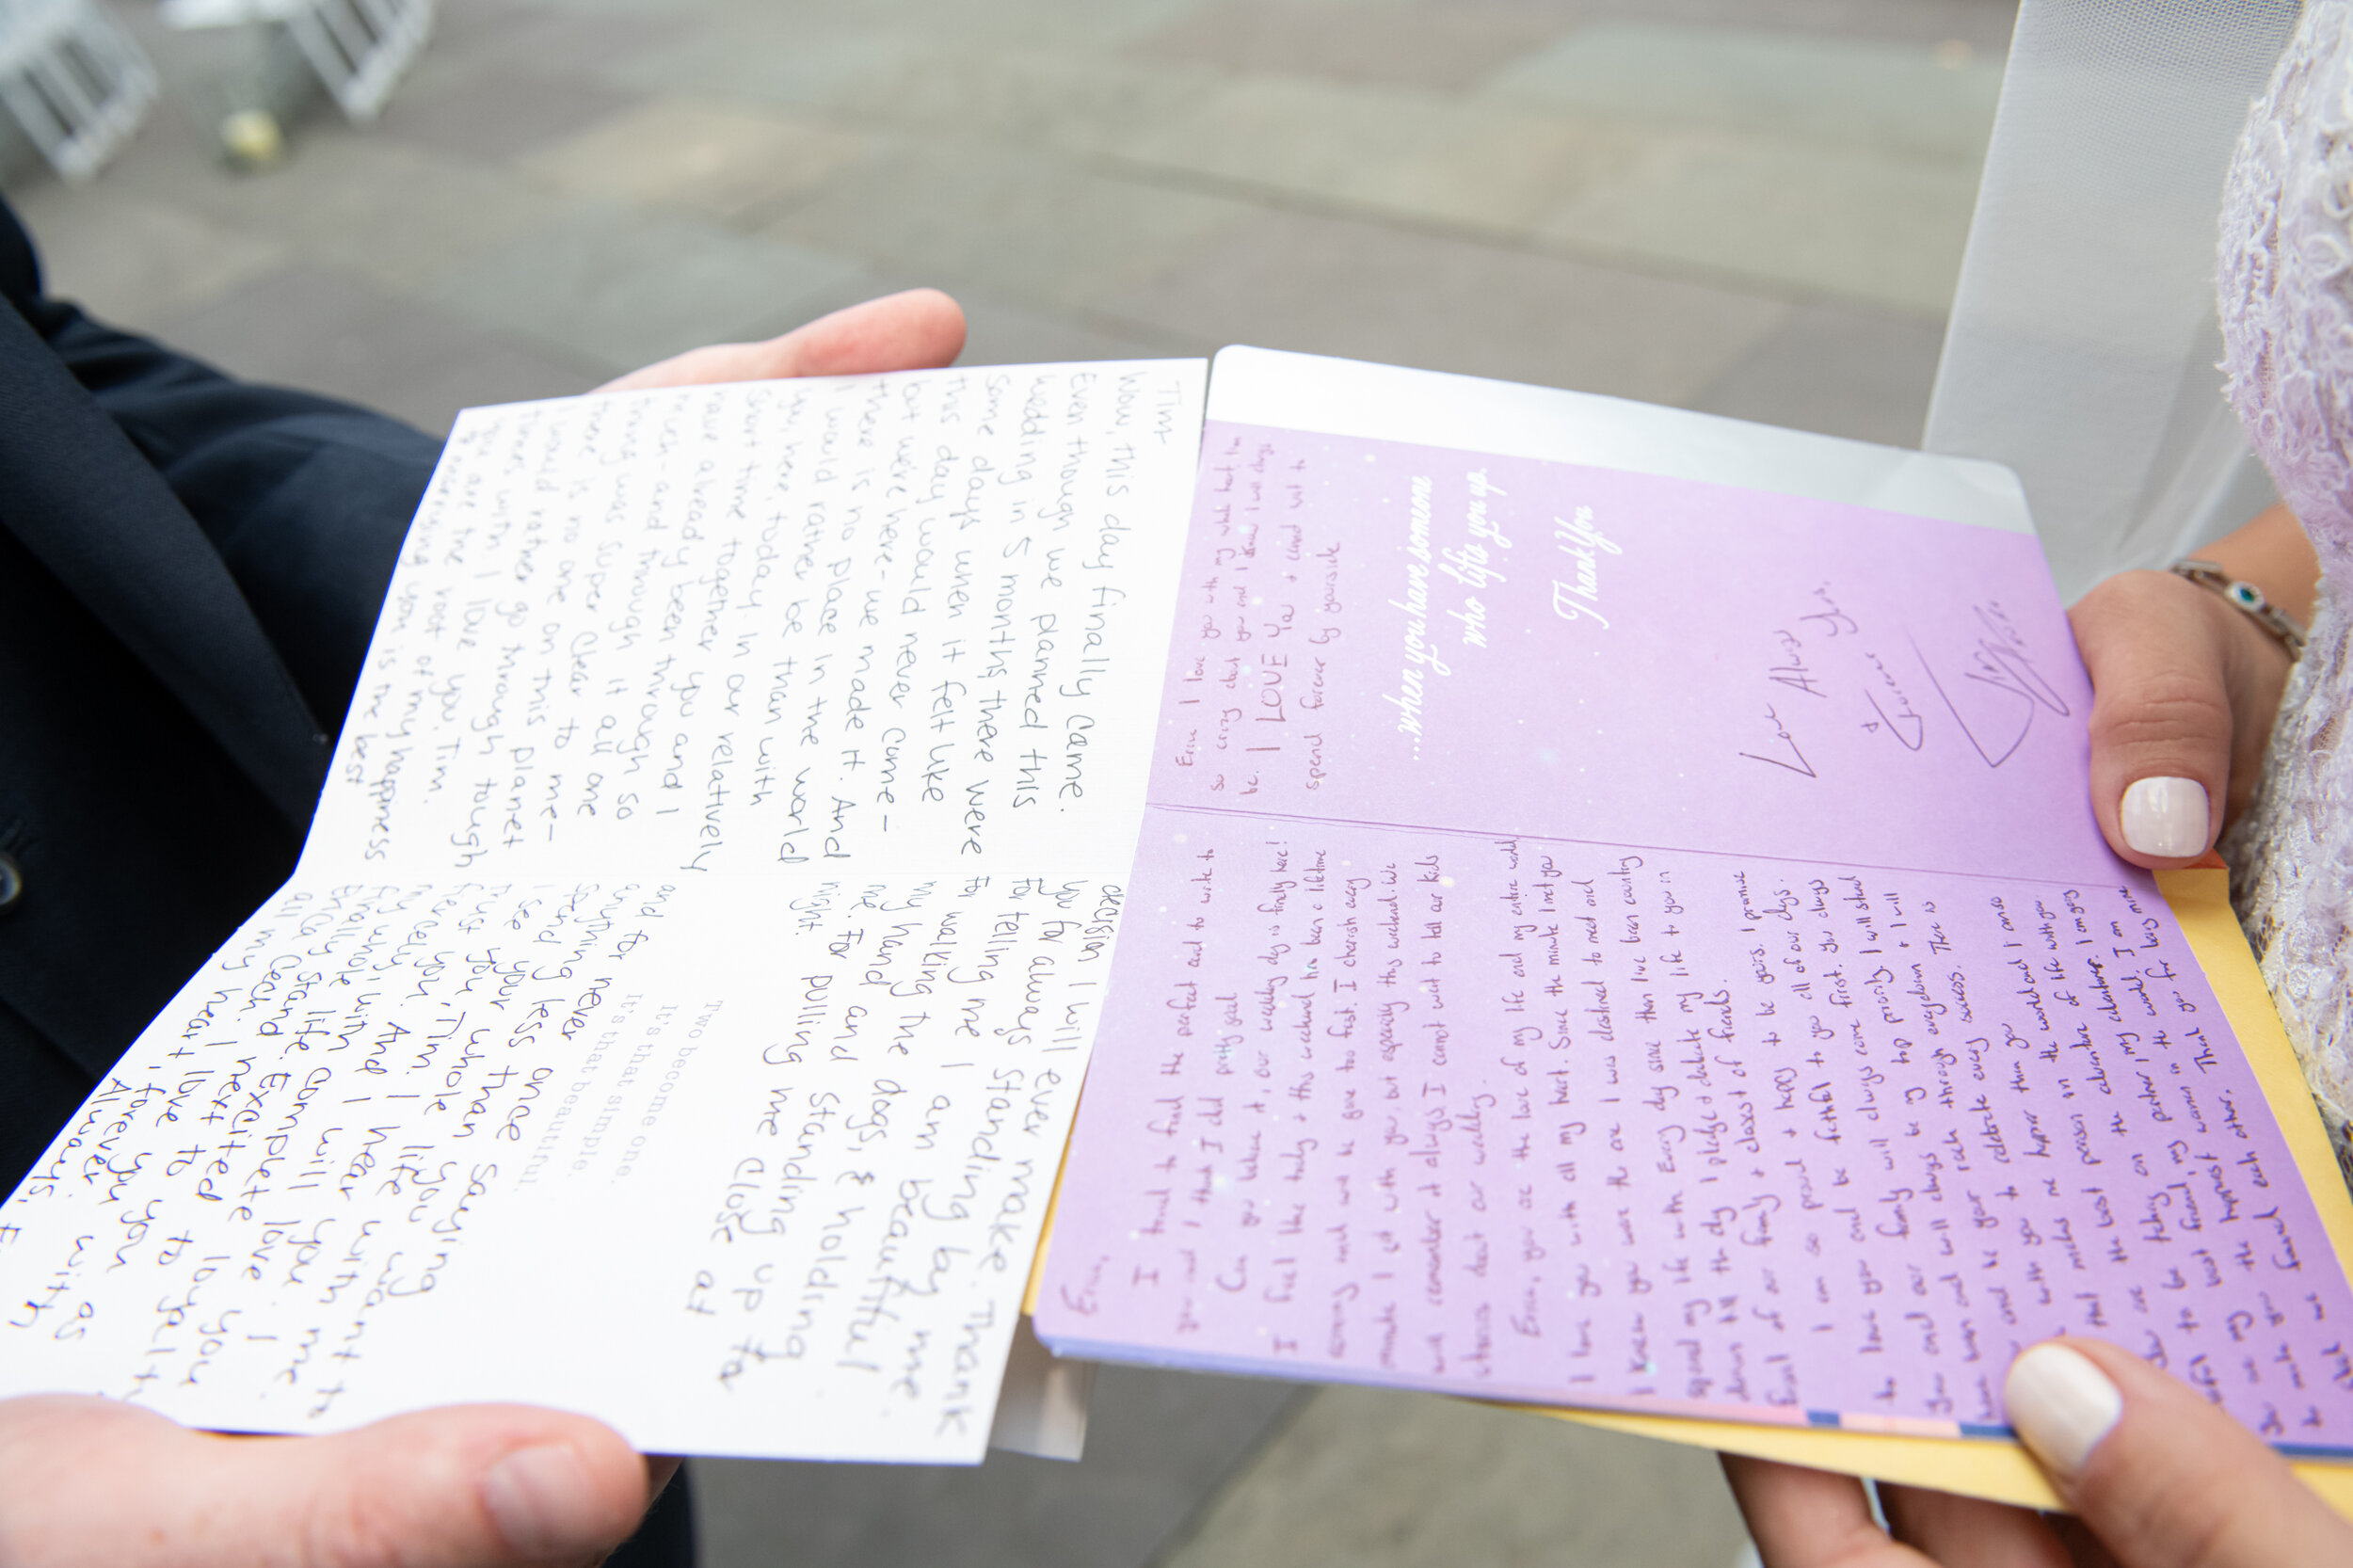 Tim-
Wow, this day finally came.
Even though we planned this
wedding in 5 months there were
some days when it felt like
this day would never come -
but we're here - we made it. And
there is no place in the world
I would rather be than with
you, here, today. In our relatively
short time together you and I
have already been through so
much - and through it all one
thing was super clear to me -
there is no one on this planet
I would rather go through tough
times with. I love you, Tim.
You are the root of my happiness
& marrying you is the best
decision I will ever make. Thank
you for always standing by me.
For telling me I am beautiful.
For walking the dogs, & holding
my hand and standing up for
me. For pulling me close at
night.
Two become one.
It's that simple.
It's that beautiful.
and for never once saying
anything less than you want to
spend your whole life with me.
I see you, Tim. I hear you. I
trust you. And I will love you
fiercely, with complete loyalty
my whole life. Excited to
finally stand next to you as
Erica Cean. I love you with
all my heart, forever &
Always,
Erica,
I tried to find the perfect card to write to
you and I think I did pretty good
Can you believe it, our wedding day is finally here!
I feel like today & this weekend has been a lifetime
coming and will be gone too fast. I cherish every
minute I get with you, but especially this weekend. We
will remember it always I cannot wait to tell our kids
stories about our wedding.
Erica, you are the love of my life and my entire world
I love you with all my heart. Since the minute I met you
I knew you were the one I was destined to meet and
spend my life with. Every day since then I've been counting
down till this day I pledge & dedicate my life to you in
front of our family & closest of friends.
I am so proud & happy to be yours. I promise
to love you and be faithful to you all of our days.
You and our family will always come first. You always
have been and will always be my top priority. I will stand
and be your rock through every down & I will
with you to celebrate every success. There is
that makes me happier than you
the best person in the world and I am so
taking on the adventure of life with you
partner in my adventures. I am
to be best friend, my woman in the world. I am
you are my the happiest
to make you Thank you for being mine
that we found each other.
Erica I love you with my whole heart, I'm
so crazy about you and I know I will always
be. I LOVE You & cannot wait to
spend forever by your side
...when you have someone
who lifts you up.
Thank You
Love Always
& Forever